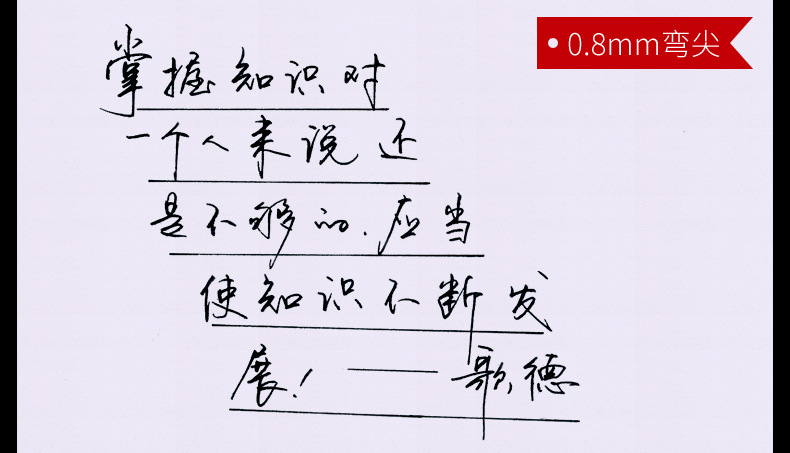 0.8mm弯尖
掌握知识对
一个人来说还
是不够的.应当
使知识不断发
展!——歌德